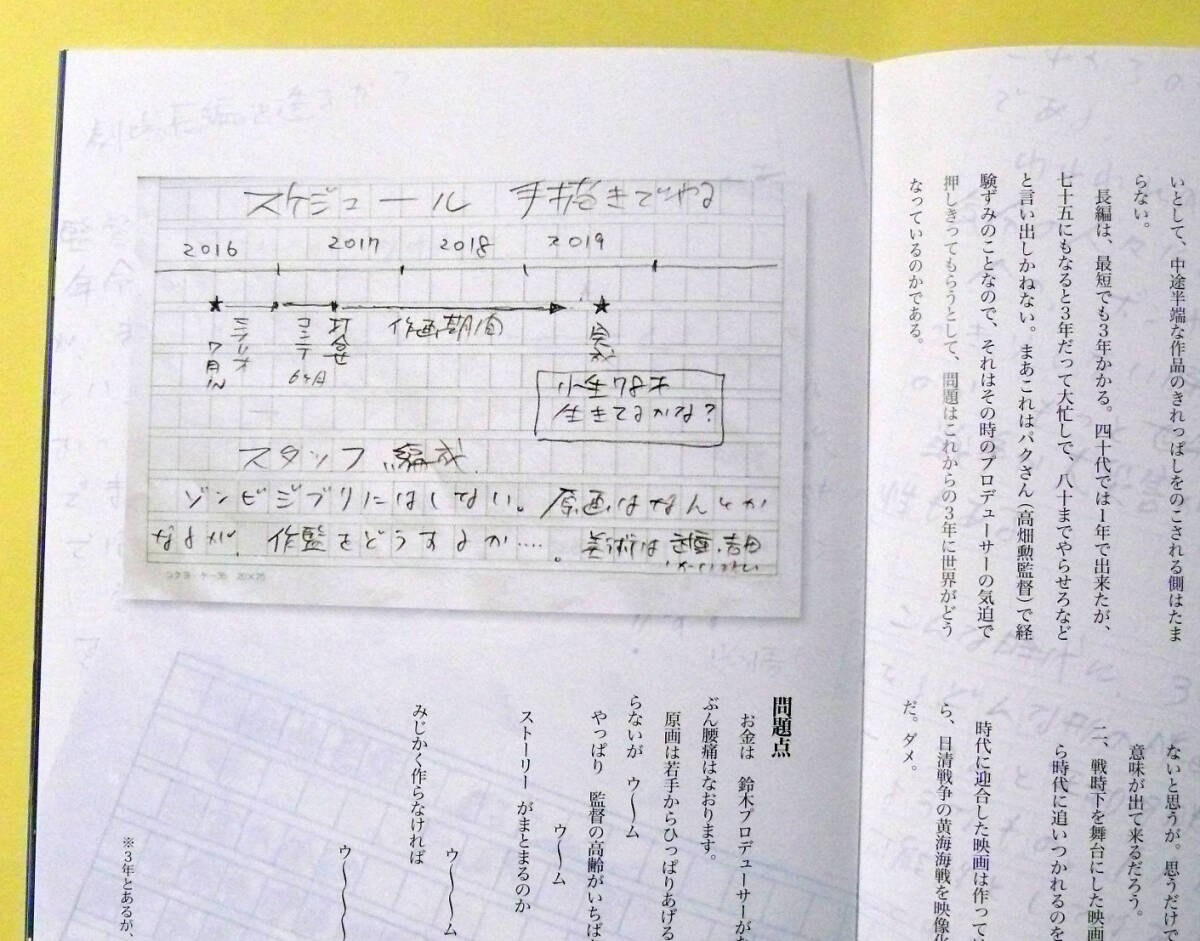 いとして、中途半端な作品のきれっぱしをのこされる側はたま
らない。
長編は、最短でも3年かかる。四十代では1年で出来たが、
七十五にもなると3年だって大忙しで、八十までやらせろなど
と言い出しかねない。まあこれはパクさん(高畑勲監督)で経
験ずみのことなので、それはその時のプロデューサーの気迫で
押しきってもらうとして、問題はこれからの3年に世界がどう
なっているのかである。
ないと思うが。思うだけで
意味が出て来るだろう。
二、戦時下を舞台にした映画
ら時代に追いつかれるのを
時代に迎合した映画は作ってい
ら、日清戦争の黄海海戦を映像化
だ。ダメ。
スケジュール 手描きでやる
2016 2017 2018 2019
7月IN
シナリオ
コンテ
6ヶ月
打合せ
作画期間
完成
小生78才
生きてるかな?
スタッフ編成
ゾンビジブリにはしない。原画はなんとか
なるが、作監をどうするか‥‥。美術は 吉田
コクヨ ケー35 20×20
問題点
お金は 鈴木プロデューサーがな
ぶん腰痛はなおります。
原画は若手からひっぱりあげる
らないが ウ〜ム
やっぱり 監督の高齢がいちば
ウ〜ム
ストーリー がまとまるのか
ウ〜〜ム
みじかく作らなければ
ウ〜〜〜
※3年とあるが、